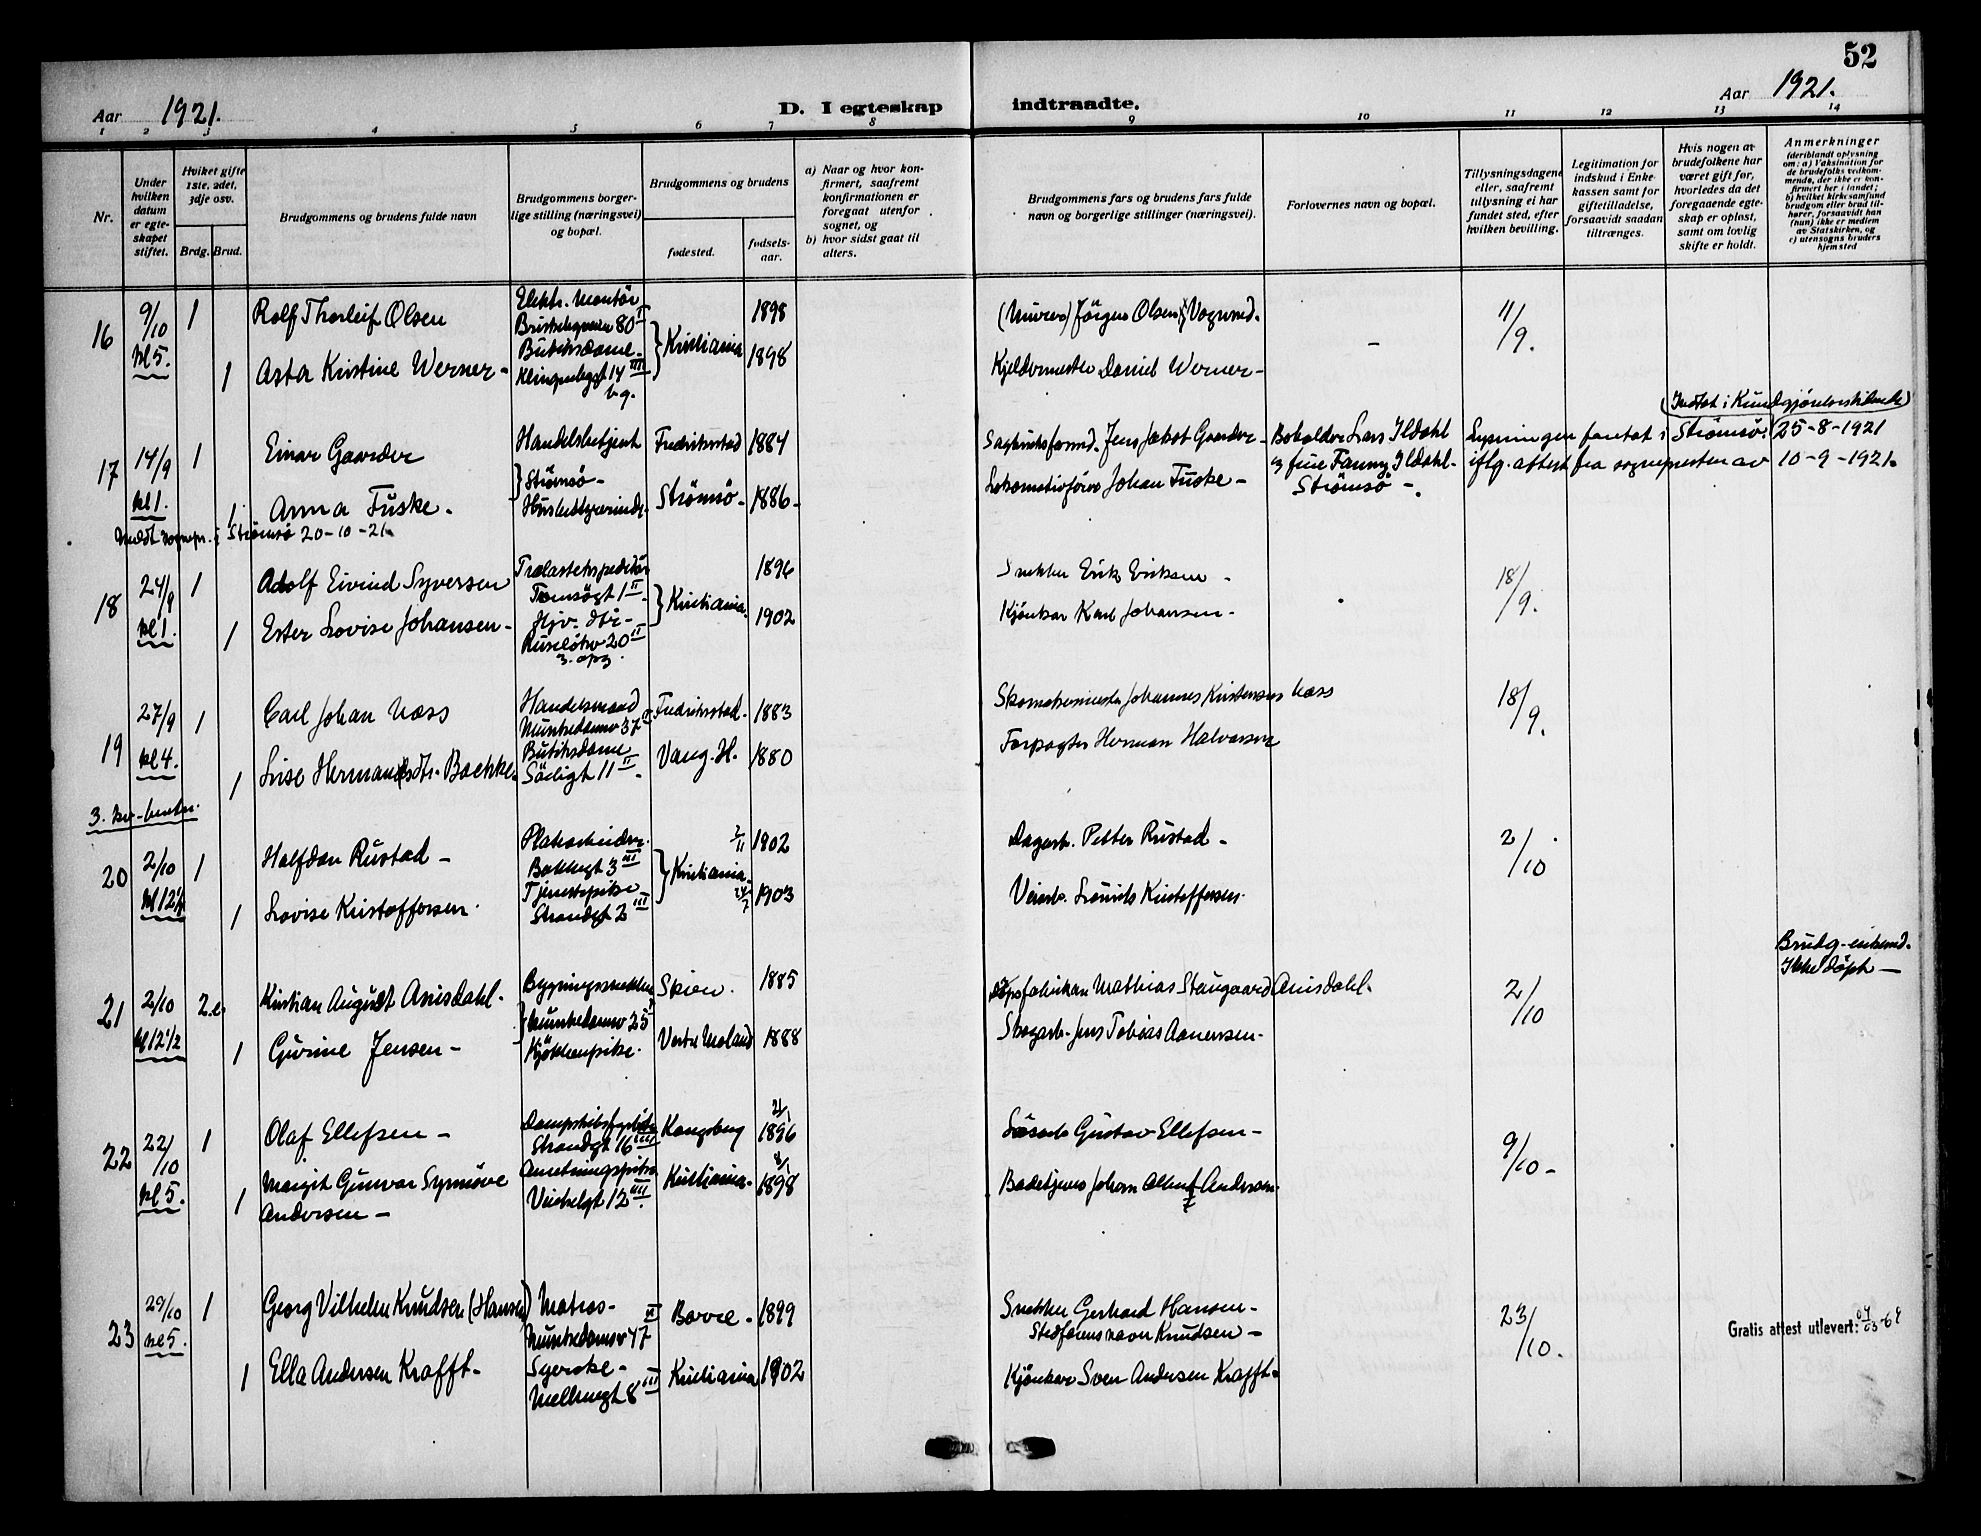 52
Aar 1921.
D. I egteskap indtraadte.
Aar 1921.
1 2 3 4 5 6 7 8 9 10 11 12 13 14
Nr.
Under hvilken datum er egteskapet stiftet.
Hvilket gifte 1ste, 2det, 3dje osv.
Brdg. Brud.
Brudgommens og brudens fulde navn
Brudgommens borgerlige stilling (næringsvei) og bopæl.
Brudgommens og brudens
fødested.
fødselsaar.
a) Naar og hvor konfirmert, saafremt konfirmationen er foregaat utenfor sognet, og
b) hvor sidst gaat til alters.
Brudgommens fars og brudens fars fulde navn og borgerlige stillinger (næringsvei).
Forlovernes navn og bopæl.
Tillysningsdagene eller, saafremt tillysning ei har fundet sted, efter hvilken bevilling.
Legitimation for indskud i Enkekassen samt for giftetilladelse, forsaavidt saadan tiltrænges.
Hvis nogen av brudefolkene har været gift før, hvorledes da det foregaaende egteskap er opløst, samt om lovlig skifte er holdt.
Anmerkninger (deriblandt oplysning om: a) Vaksination for de brudefolks vedkommende, der ikke er konfirmert her i landet; b) hvilket kirkesamfund brudgom eller brud tilhører, forsaavidt han (hun) ikke er medlem av Statskirken, og c) utensogns bruders hjemsted
16 9/10 kl 5. 1 Rolf Thorleif Olsen Elektr. Montör 80 II } Kristiania 1898 Jörgen Olsen Vognmd. - 11/9.
1 Asta Kristine Werner - Butiksdame - 14 III b g. 1898 Kjeldermester Daniel Werner -
17 14/9 kl 1. 1 Einar Gaarder Handelsbetjent Fredrikstad 1884 Jens Jakob Gaarder - Lars Ildahl Lysningen foretat i Strømsø. 25-8-1921
(Indtat i
} Strömsö - og frue Fanny Ildahl - iflg. attest fra sognepresten av 10-9-1921.
1 Anna Tuske. Strömsö - 1886 - Lokomotivförer Johan Tuske - Strömsö -.
Meldt sognepr. i Strömsö 20-10-21.
18 24/9 kl 1. 1 Adolf Eivind Syversen Tomsögt 1 II } Kristiania. 1896 Snekker Erik Eriksen - 18/9.
1 Ester Lovise Johansen - Hjv. dtr - 20 II 3. opg. 1902 Kjörekar Karl Johansen -
19 27/9 kl 4. 1 Carl Johan Næss Handelsmand Munkedamsv 37 II Fredrikstad. 1883 Skomakermester Johannes Kristensen Næss 18/9.
1 Lise Hermansdtr. Baekke. Butiksdame 11 II. Vang. H. 1880 Forpagter Herman Halvorsen
3. kv.
20 2/10 kl 12½ 1 Halfdan Rustad - Platearbeider. Bakkegt 3 III } Kristiania. 2/11 1902 Dagarb. Petter Rustad - 2/10
1 Lovise Kristoffersen. Tjenestepike Strandgt 2 III 24/7 1903 Veiarb. Kristoffersen.
21 2/10 kl 12½ 2.e. Kristian August Anisdahl. Bygningssnekker Skien. 1885 Mathias Stensgaard Anisdahl. 2/10
Brudg. enkemd.
Ikke döpt -
} Munkedamsv 25
1 Gurine Jensen - Kjökkenpike. Vestre Moland 1888 Skogarb. Jens Tobias Aanensen.
22 22/10 kl 5. 1 Olaf Ellefsen - Strandgt 16 III Kongsberg 1896 Gustav Ellefsen - 9/10 -
1 Margit Gunvor Synnöve Andersen - Anretningspike Veiskelgt 12 III. Kristiania. 8/1 1898 Badetjener Johan Andersen.
23 29/10 kl 5. 1 Georg Vilhelm Knudsen (Hansen) Matros - Munkedamsv 47 II Borre. 1899 Snekker Gerhard Hansen - 23/10.
Stedfarens navn Knudsen -
Gratis attest utlevert:
1 Ella Andersen Krafft. Syerske - 8 III Kristiania 1902 Kjörekar Sven Andersen Krafft.